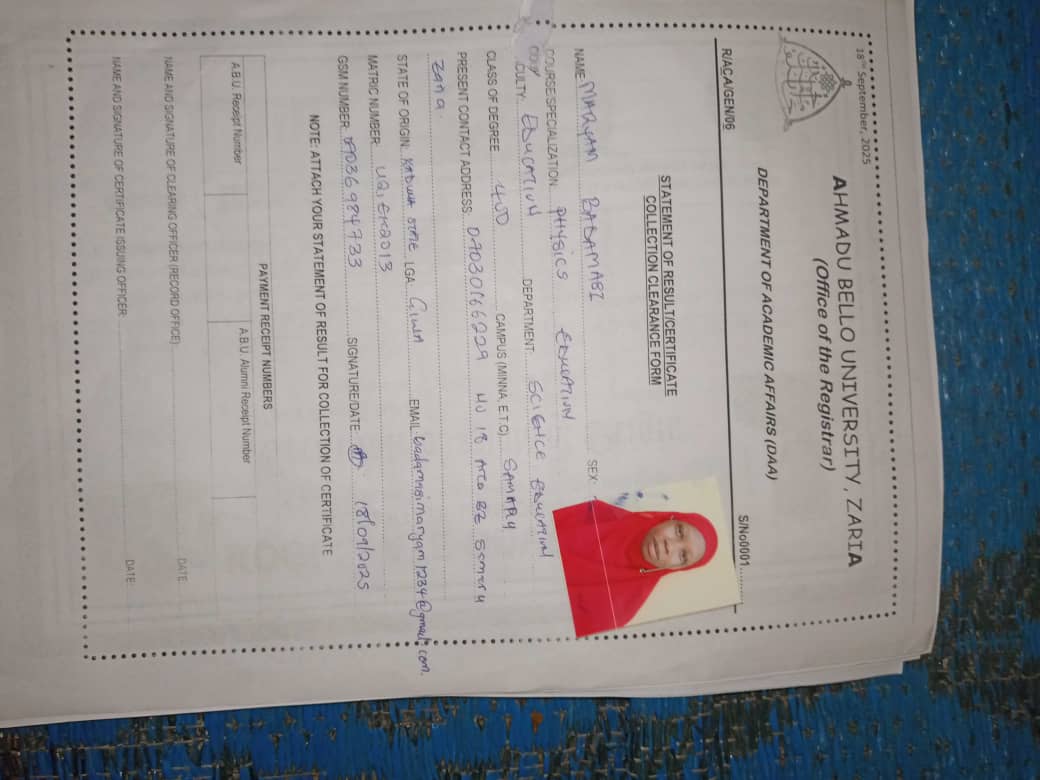 18TH September, 2025
AHMADU BELLO UNIVERSITY, ZARIA
(Office of the Registrar)
DEPARTMENT OF ACADEMIC AFFAIRS (DAA)
R/ACA/GEN/06
S/No0001..........
STATEMENT OF RESULT/CERTIFICATE
COLLECTION CLEARANCE FORM
NAME: MARYAM BADAMASI SEX:
COURSE/SPECIALIZATION: PHYSICS EDUCATION
CULTY: EDUCATION DEPARTMENT: SCIENCE EDUCATION
CLASS OF DEGREE CAMPUS (MINNA, E.T.C) SAMARU
PRESENT CONTACT ADDRESS: 07030166229 NO 18 Area BZ Samaru
Zaria.
STATE OF ORIGIN: KADUNA STATE LGA: Giwa EMAIL: badamasimaryam1234@gmail.com.
MATRIC NUMBER: U21EK2013
GSM NUMBER: 07036984733 SIGNATURE/DATE: 18/09/2025
NOTE: ATTACH YOUR STATEMENT OF RESULT FOR COLLECTION OF CERTIFICATE
PAYMENT RECEIPT NUMBERS
A.B.U. Receipt Number A.B.U. Alumni Receipt Number
NAME AND SIGNATURE OF CLEARING OFFICER (RECORD OFFICE): DATE:
NAME AND SIGNATURE OF CERTIFICATE ISSUING OFFICER: DATE: